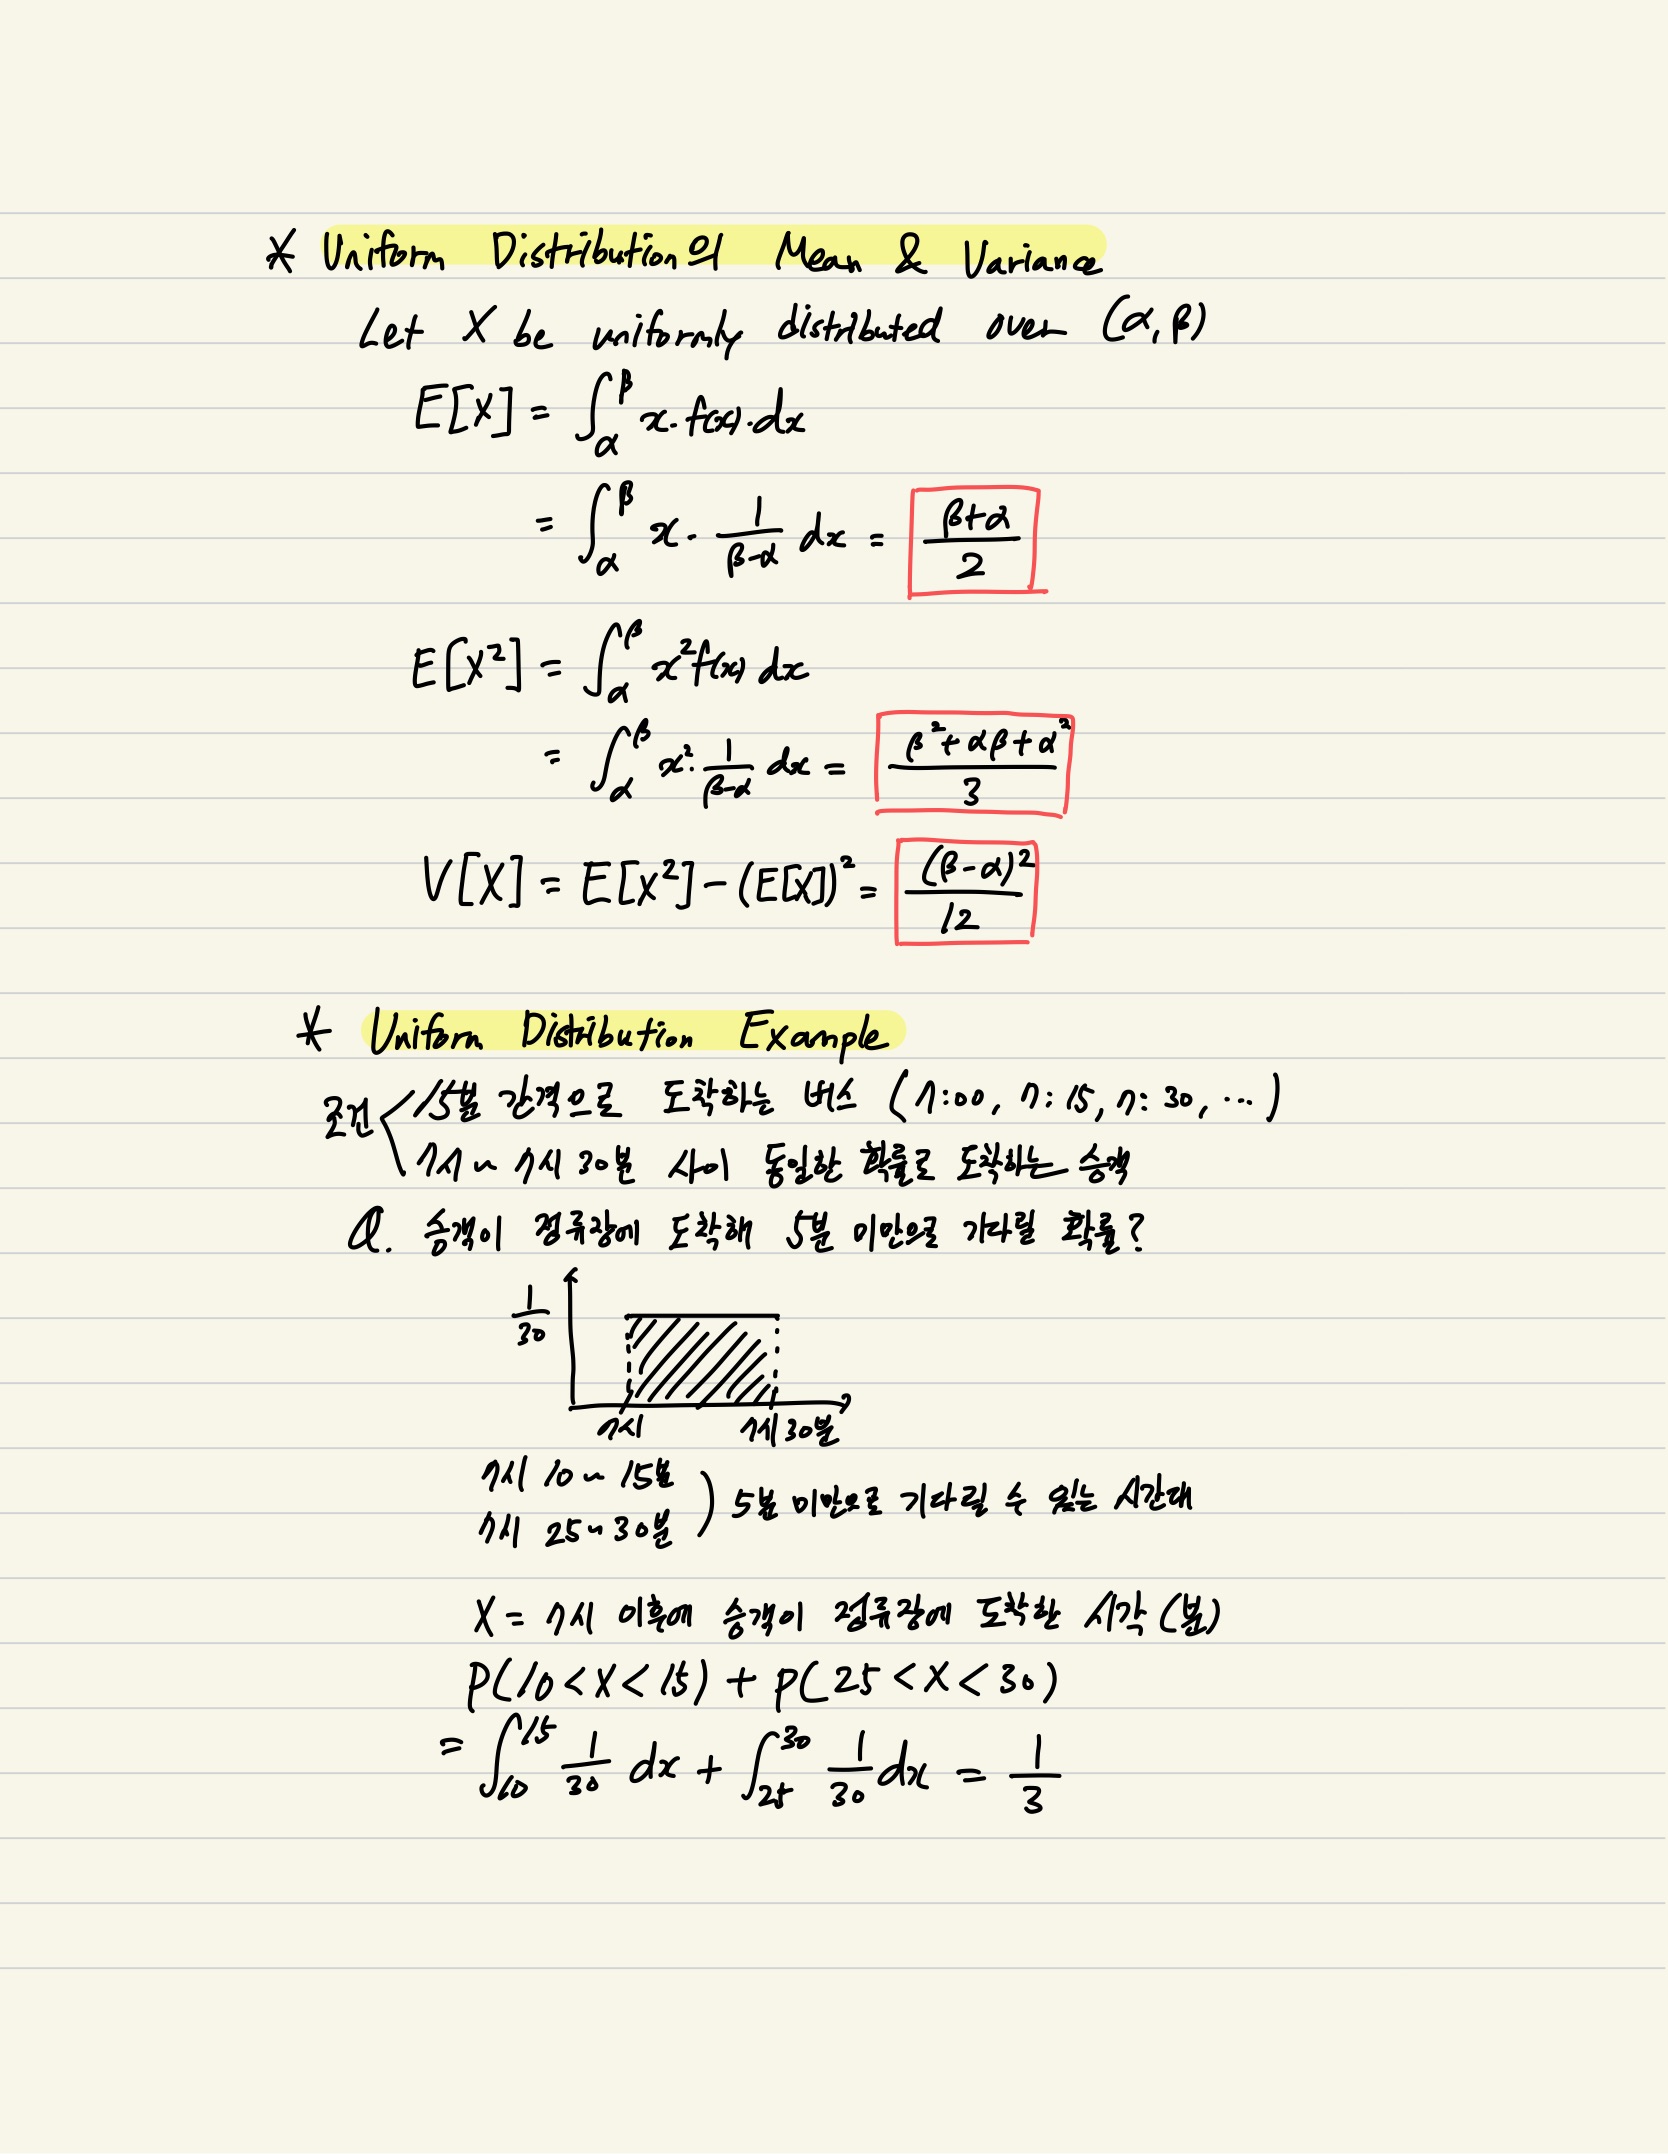 * Uniform Distribution의 Mean & Variance
Let X be uniformly distributed over (α, β)
E[X] = ∫_α^β x · f(x) · dx
= ∫_α^β x · 1/(β-α) dx = (β+α)/2
E[X²] = ∫_α^β x² f(x) dx
= ∫_α^β x² · 1/(β-α) dx = (β² + αβ + α²)/3
V[X] = E[X²] - (E[X])² = (β-α)²/12
* Uniform Distribution Example
조건 < 15분 간격으로 도착하는 버스 (7:00, 7:15, 7:30, ...)
7시 ~ 7시 30분 사이 동일한 확률로 도착하는 승객
Q. 승객이 정류장에 도착해 5분 미만으로 기다릴 확률?
1/30
7시 7시 30분
7시 10 ~ 15분
7시 25 ~ 30분 ) 5분 미만으로 기다릴 수 있는 시간대
X = 7시 이후에 승객이 정류장에 도착한 시각 (분)
P(10 < X < 15) + P(25 < X < 30)
= ∫_10^15 1/30 dx + ∫_25^30 1/30 dx = 1/3